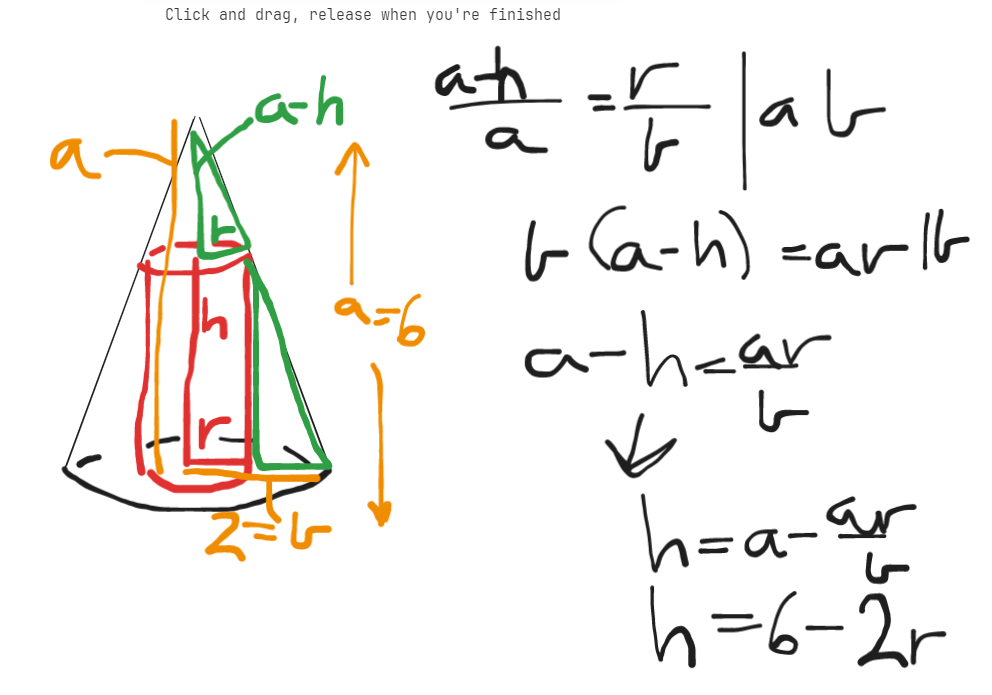 Click and drag, release when you're finished
a
a-h
r
h
r
a=6
2=b
a-h/a = r/b | a b
b(a-h) = ar |b
a-h = ar/b
h = a - ar/b
h = 6 - 2r